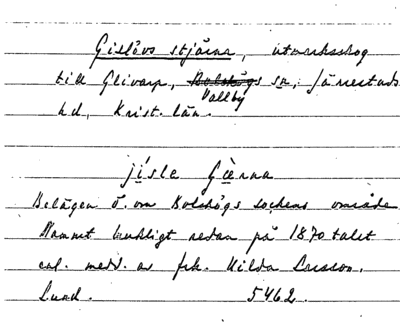 Gislövs stjärna, utmarksskog
till Glivarp, Bolshögs sn, Järrestads
Vallby
hd, Krist. län.
jísle Gæ̀rna
Belägen ö. om Bolshögs sockens område
Namnet brukligt redan på 1870 talet
enl. medd. av frk. Hilda Larsson,
Lund. 5462.